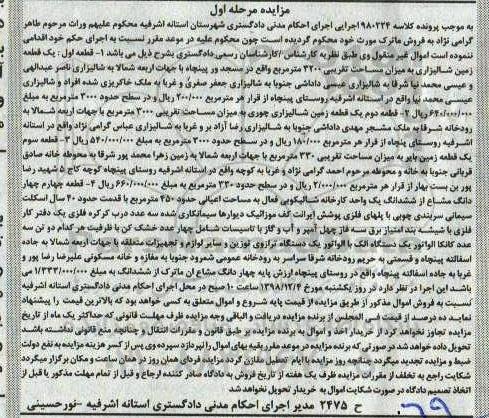 مزایده مرحله اول
به موجب پرونده کلاسه ۹۸۰۲۲۴اجرایی اجرای احکام مدنی دادگستری شهرستان استانه اشرفیه محکوم علیهم وراث مرحوم طاهر
گرامی نژاد به فروش ماترک مورث خود محکوم گردیده است چون محکوم علیه در موعد مقرر نسبت به اجرای حکم خود اقدامی
ننموده است اموال غیر منقول وی طبق نظریه کارشناس /کارشناسان رسمی دادگستری بشرح ذیل می باشد ۱- قطعه اول: یک قطعه
زمین شالیزاری به میزان مساحت تقریبی ۳۲۰۰ مترمربع واقع در مسجد ور پینچاه با جهات اربعه شمالا به شالیزاری ناصر عبدالهی
و عیسی محمد نیا شرقا به شالیزاری عیسی داداشی جنوبا به شالیزاری جعفر صفری و غربا به ملک خاکریزی شده افراد و شالیزاری
عیسی محمد نیا واقع در آستانه اشرفیه روستای پینچاه از قرار هر مترمربع ۲۰۰/۰۰۰ ریال و در سطح حدود ۳۰۰۰ مترمربع به مبلغ
۶۴۰/۰۰۰/۰۰۰ ریال ۲- قطعه دوم زمین شالیزاری چوری به میزان مساحت تقریبی ۳۰۰۰ مترمربع با جهات اربعه شمالا به
رودخانه شرقا به ملک مشجر مهدی داداشی جنوبا به شالیزاری رضا آزاد بر و غربا به شالیزاری عباس گرامی نژاد واقع در استانه
اشرفیه روستای پینچاه از قرار هر مترمربع ۱۸۰/۰۰۰ ریال و در سطح حدود ۳۰۰۰ مترمربع به مبلغ ۵۴۰/۰۰۰/۰۰۰ ریال ۳- قطعه سوم
یک قطعه زمین بایر به میزان مساحت تقریبی ۳۳۰ مترمربع با جهات اربعه شمالا به زمین زهرا محمد پور شرقا به محوطه خانه صادق
قربانی جنوبا به خانه و محوطه مرحوم احمد گرامی نژاد و غربا به کوچه واقع در آستانه اشرفیه روستای پینچاه کوچه کاج ۵ شهید رضا
پور بن بست بهار از قرار هر مترمربع ۲/۰۰۰/۰۰۰ ریال و در سطح حدود ۳۳۰ مترمربع به مبلغ ۶۶۰/۰۰۰/۰۰۰ ریال ۴- قطعه چهارم چهار
دانگ مشاع از ششدانگ یک واحد کارخانه شالیکوبی فعال به مساحت اعیانی حدود ۴۵۰ مترمربع با قدمت حدود ۴۰ سال اسکلت
سیمانی سربندی چوبی با پلهای فلزی پوشش ایرانت کف موزائیک دیوارها سیمانکاری شده سه عدد درب کرکره فلزی یک دفتر کار
فلزی با شیشه بند امتیاز برق سه فاز چهل آمپر و آب و گاز با تاسیسات شامل چهار عدد خشک کن با ظرفیت هر کدام دو تن سه
عدد کانکا الواتور یک دستگاه الک با الواتور یک دستگاه ترازوی توزین و سایر لوازم و تجهیزات متعلقه با جهات اربعه شمالا به جاده
اسفالته پینچاه و قسمتی به حریم رودخانه شرقا سراسر به رودخانه عمومی شمرود جنوبا به مغازه و خانه مسکونی علیرضا رضا پور و
غربا به جاده اسفالته پینچاه واقع در روستای پینچاه ارزش پایه چهار دانگ مشاع ان ماترک از ششدانگ به مبلغ ۱/۳۳۳/۰۰۰/۰۰۰ می
باشد این اجرا در نظر دارد در روز یکشنبه مورخ ۱۳۹۸/۱۲/۴ ساعت ۱۰ صبح در محل اجرای احکام مدنی دادگستری استانه اشرفیه
نسبت به فروش اموال مذکور از طریق مزایده از قیمت پایه شروع و اموال متعلق به کسی خواهد بود که بالاترین قیمت را پیشنهاد
نماید ده درصد از قیمت فی المجلس از برنده مزایده دریافت و الباقی وجه مزایده ظرف مهلت قانونی که حداکثر یک ماه از تاریخ
مزایده تجاوز نخواهد کرد از خریدار اخذ و اموال به برنده مزایده بر طبق قانون و مقررات انتقال و چنانچه منع قانونی نداشته باشد
تحویل داده خواهد شد در صورتی که برنده مزایده در موعد مقرر بقیه بهای اموال را نپردازد سپرده وی پس از کسر هزینه مزایده به نفع دولت
ضبط و مزایده تجدید میگردد چنانچه روز مزایده با ایام تعطیل مقارن گردد مزایده فردای همان روز در همان ساعت و مکان برگزار میگردد
شکایت راجع به تخلف از مقررات مزایده ظرف یک هفته از تاریخ فروش به دادگاه صادر کننده ارجاع و قبل از تمام مهلت مذکور یا قبل از
اتخاذ تصمیم دادگاه در صورت شکایت اموال به خریدار تحویل نخواهد شد
ح ۲۴۷۵ مدیر اجرای احکام مدنی دادگستری استانه اشرفیه -نورحسینی